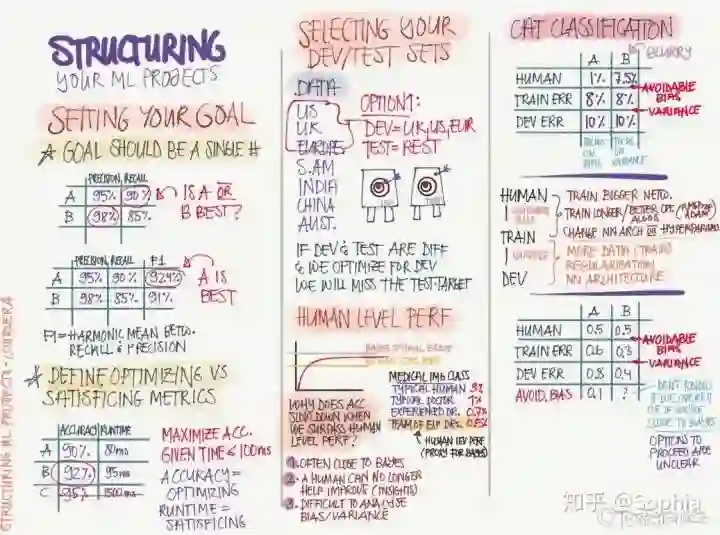 STRUCTURING
YOUR ML PROJECTS
SETTING YOUR GOAL
GOAL SHOULD BE A SINGLE #
PRECISION RECALL
A 95% 90%
B 98% 85%
IS A OR
B BEST?
PRECISION RECALL F1
A 95% 90% 92.4%
B 98% 85% 91%
A IS
BEST
F1 = HARMONIC MEAN BETW.
RECALL & PRECISION
DEFINE OPTIMIZING VS
SATISFICING METRICS
ACCURACY RUNTIME
A 90% 80ms
B 92% 95ms
C 95% 1500ms
MAXIMIZE ACC.
GIVEN TIME ≤ 100ms
ACCURACY =
OPTIMIZING
RUNTIME =
SATISFICING
STRUCTURING ML PROJECT - COURSERA
SELECTING YOUR
DEV/TEST SETS
DATA
US
UK
EUROPE
S.AM
INDIA
CHINA
AUST.
OPTION1:
DEV = UK, US, EUR
TEST = REST
IF DEV & TEST ARE DIFF
& WE OPTIMIZE FOR DEV
WE WILL MISS THE TEST TARGET
HUMAN LEVEL PERF
BAYES OPTIMAL ERROR
WHY DOES ACC
SLOW DOWN WHEN
WE SURPASS HUMAN
LEVEL PERF?
MEDICAL IMG CLASS
TYPICAL HUMAN 3%
TYPICAL DOCTOR 1%
EXPERIENCED DR. 0.7%
TEAM OF EXP DRS. 0.5%
HUMAN LEV PERF
(PROXY FOR BAYES)
1. OFTEN CLOSE TO BAYES
2. A HUMAN CAN NO LONGER
HELP IMPROVE (INSIGHTS)
3. DIFFICULT TO ANALYSE
BIAS/VARIANCE
CAT CLASSIFICATION
A B
BLURRY
HUMAN 1% 7.5%
AVOIDABLE
BIAS
TRAIN ERR 8% 8%
VARIANCE
DEV ERR 10% 10%
FOCUS FOCUS
ON ON
BIAS VARIANCE
HUMAN
AVOIDABLE BIAS
TRAIN
VARIANCE
DEV
TRAIN BIGGER NETW.
TRAIN LONGER/BETTER OPT. ALGOS (RMSPROP ADAM)
CHANGE NN ARCH OR HYPERPARAMS
MORE DATA (TRAIN)
REGULARISATION
NN ARCHITECTURE
A B
HUMAN 0.5 0.5
AVOIDABLE
BIAS
TRAIN ERR 0.6 0.3
VARIANCE
DEV ERR 0.8 0.4
AVOID. BIAS 0.1 ?
DON'T KNOW
IF WE OVERFIT
OR IF WE'RE
CLOSE TO BAYES
OPTIONS TO
PROCEED ARE
UNCLEAR
知乎 @Sophia